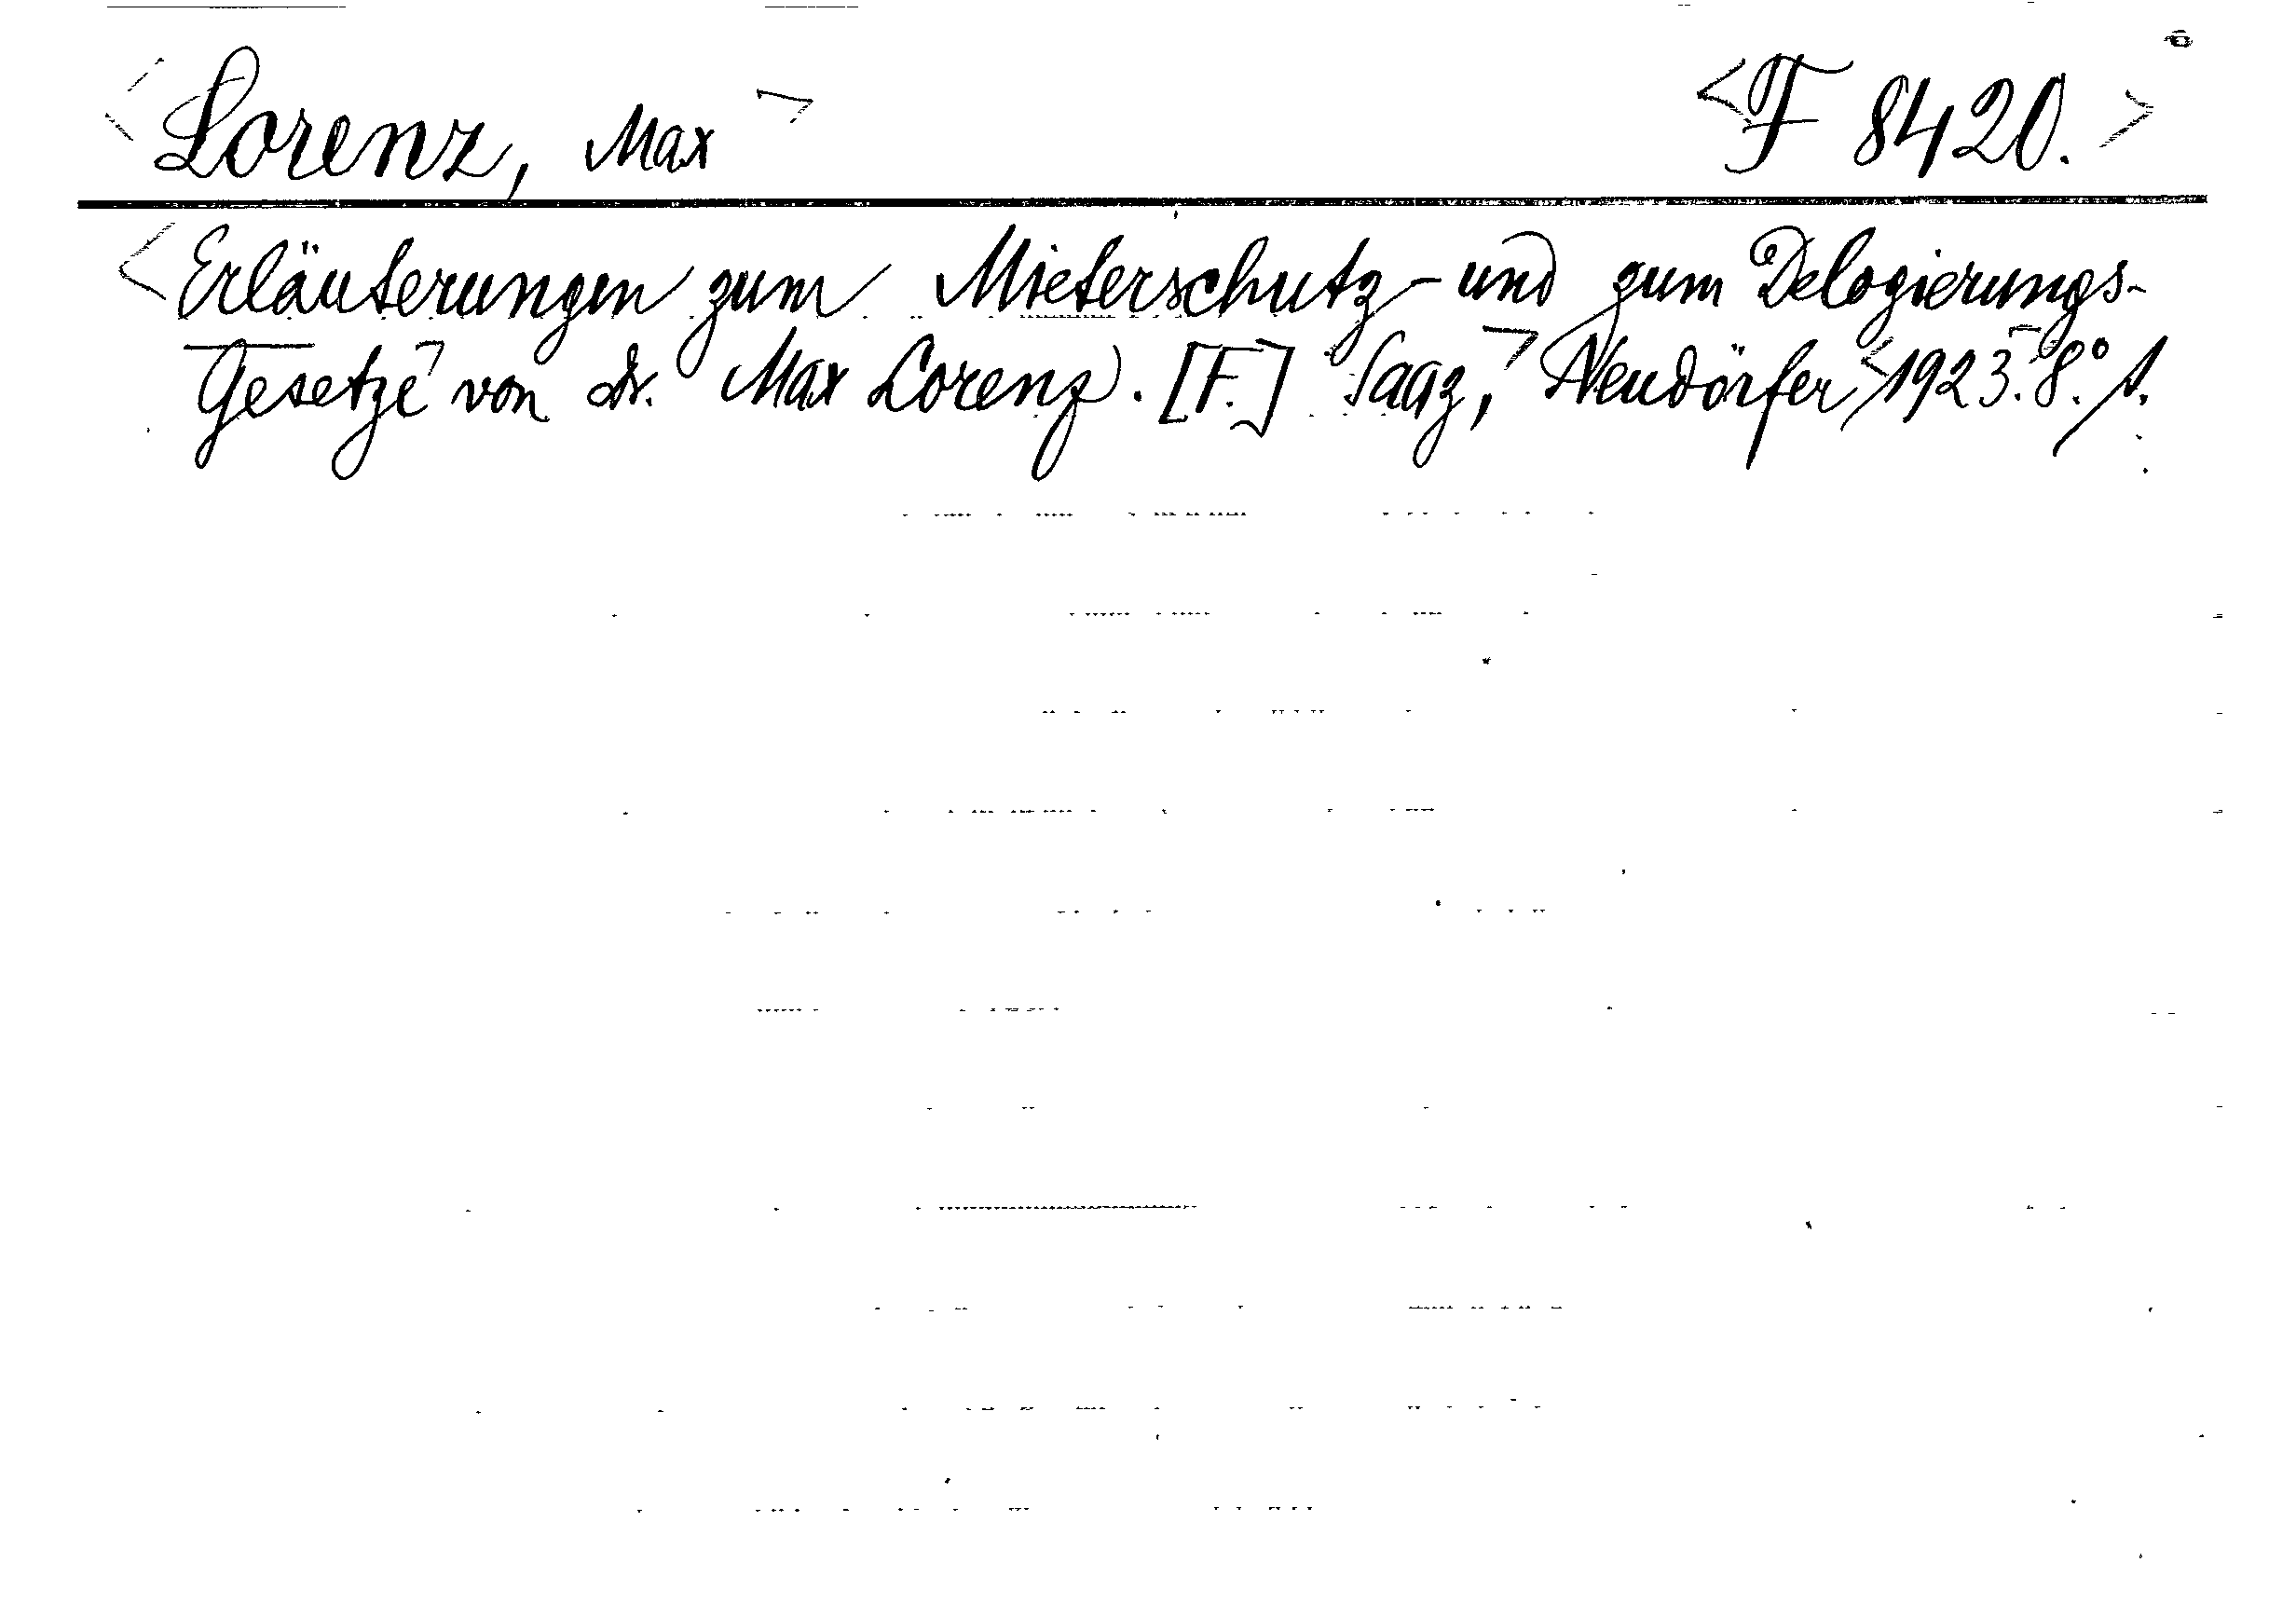 <Lorenz, Max> <F 8420.>
<Erläuterungen zum Mieterschutz- und zum Delogierungs-
Gesetze> von dr. Max Lorenz. [F.] Saaz,> Neudörfer <1923.> 8.°